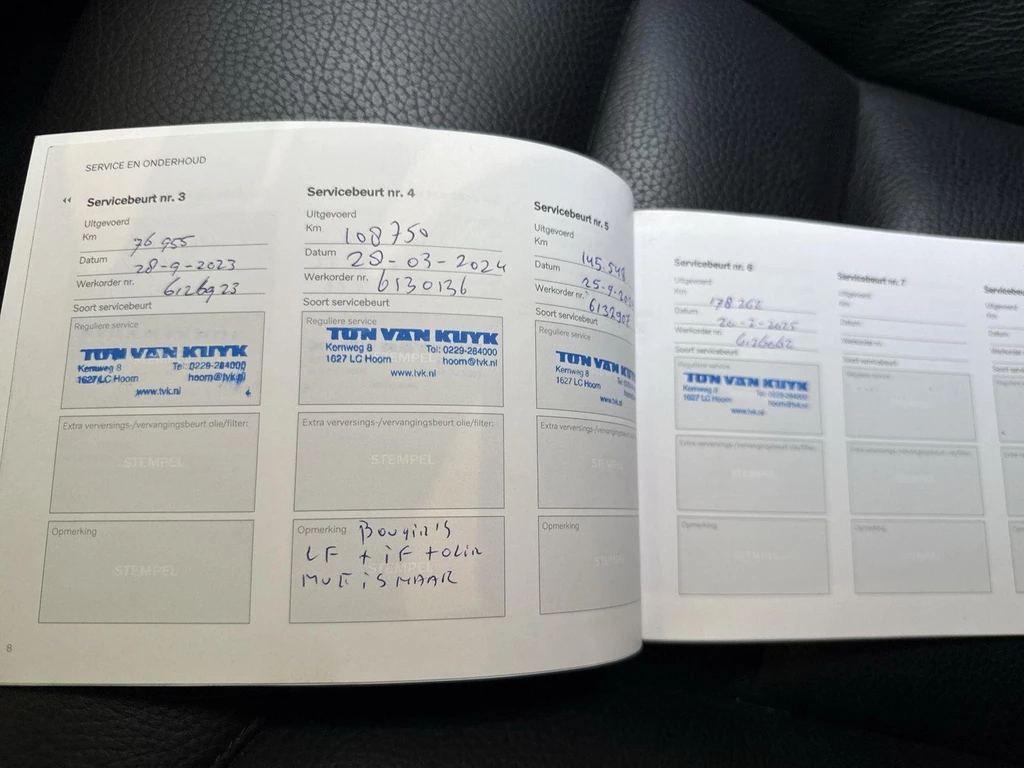 SERVICE EN ONDERHOUD
Servicebeurt nr. 3
Uitgevoerd
Km 76 955
Datum 28-9-2023
Werkorder nr. 6126923
Soort servicebeurt
Reguliere service
TON VAN KUYK
Kernweg 8 Tel: 0229-284000
1627 LC Hoorn hoorn@tvk.nl
www.tvk.nl
Extra verversings-/vervangingsbeurt olie/filter:
STEMPEL
Opmerking
STEMPEL
8
Servicebeurt nr. 4
Uitgevoerd
Km 108750
Datum 28-03-2024
Werkorder nr. 6130136
Soort servicebeurt
Reguliere service
TON VAN KUYK
Kernweg 8 Tel: 0229-284000
1627 LC Hoorn hoorn@tvk.nl
www.tvk.nl
Extra verversings-/vervangingsbeurt olie/filter:
STEMPEL
Opmerking Bougin's
LF + iF + olin
STEMPEL
Servicebeurt nr. 5
Uitgevoerd
Km 145.548
Datum 25-9-20
Werkorder nr. 6132907
Soort servicebeurt
Reguliere service
TON VAN KUY
Kernweg 8 Tel: 0
1627 LC Hoorn
www.tvk.nl
Extra verversings-/vervangingsbeurt
Opmerking
Servicebeurt nr. 6
Uitgevoerd
Km 178.262
Datum 20-2-2025
Werkorder nr.
Soort servicebeurt
Reguliere service
TON VAN KUYK
Kernweg 8 Tel: 0229-284000
1627 LC Hoorn hoorn@tvk.nl
www.tvk.nl
Extra verversings-/vervangingsbeurt olie/filter:
Opmerking
Servicebeurt nr. 7
Uitgevoerd
Km
Datum
Werkorder nr.
Soort servicebeurt
Reguliere service
Extra verversings-/vervangingsbeurt olie/filter:
Opmerking
Servicebeu